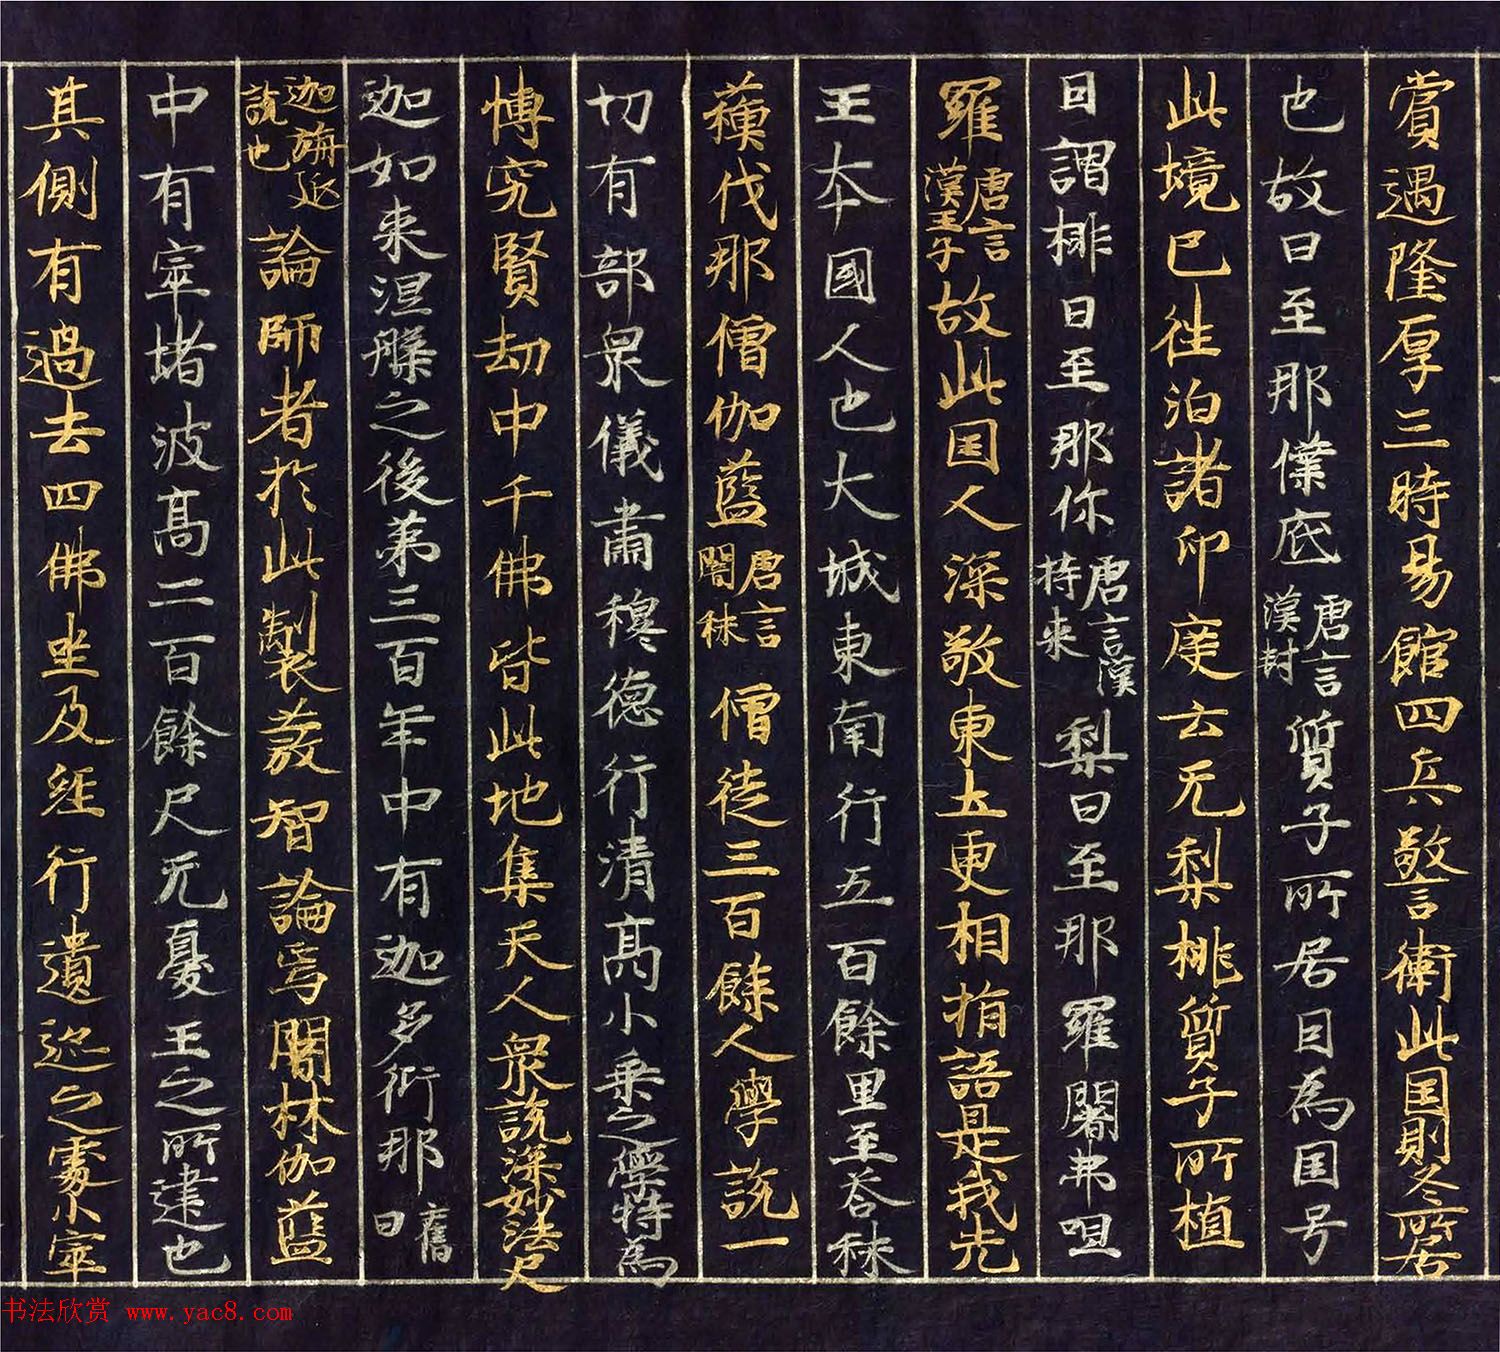 賞遇隆厚三時易館四兵警衛此国則冬所居
也故曰至那僕底唐言漢封質子所居因為国号
此境已往洎諸印度云无梨桃質子所植
因謂桃曰至那你唐言漢持来梨曰至那羅闍弗呾
羅唐言漢王子故此国人深敬東土更相指語是我先
王本國人也大城東南行五百餘里至荅秣
蘓伐那僧伽藍唐言闇秣僧徒三百餘人學説一
切有部衆儀肅穆德行清高小乘之學特為
博究賢劫中千佛皆此地集天人衆説深妙法尺
迦如来涅槃之後第三百年中有迦多衍那舊曰
迦旃延説也論師者於此製裝發智論焉闇林伽藍
中有窣堵波高二百餘尺无憂王之所建也
其側有過去四佛坐及経行遺迹之處小窣
书法欣赏 www.yac8.com